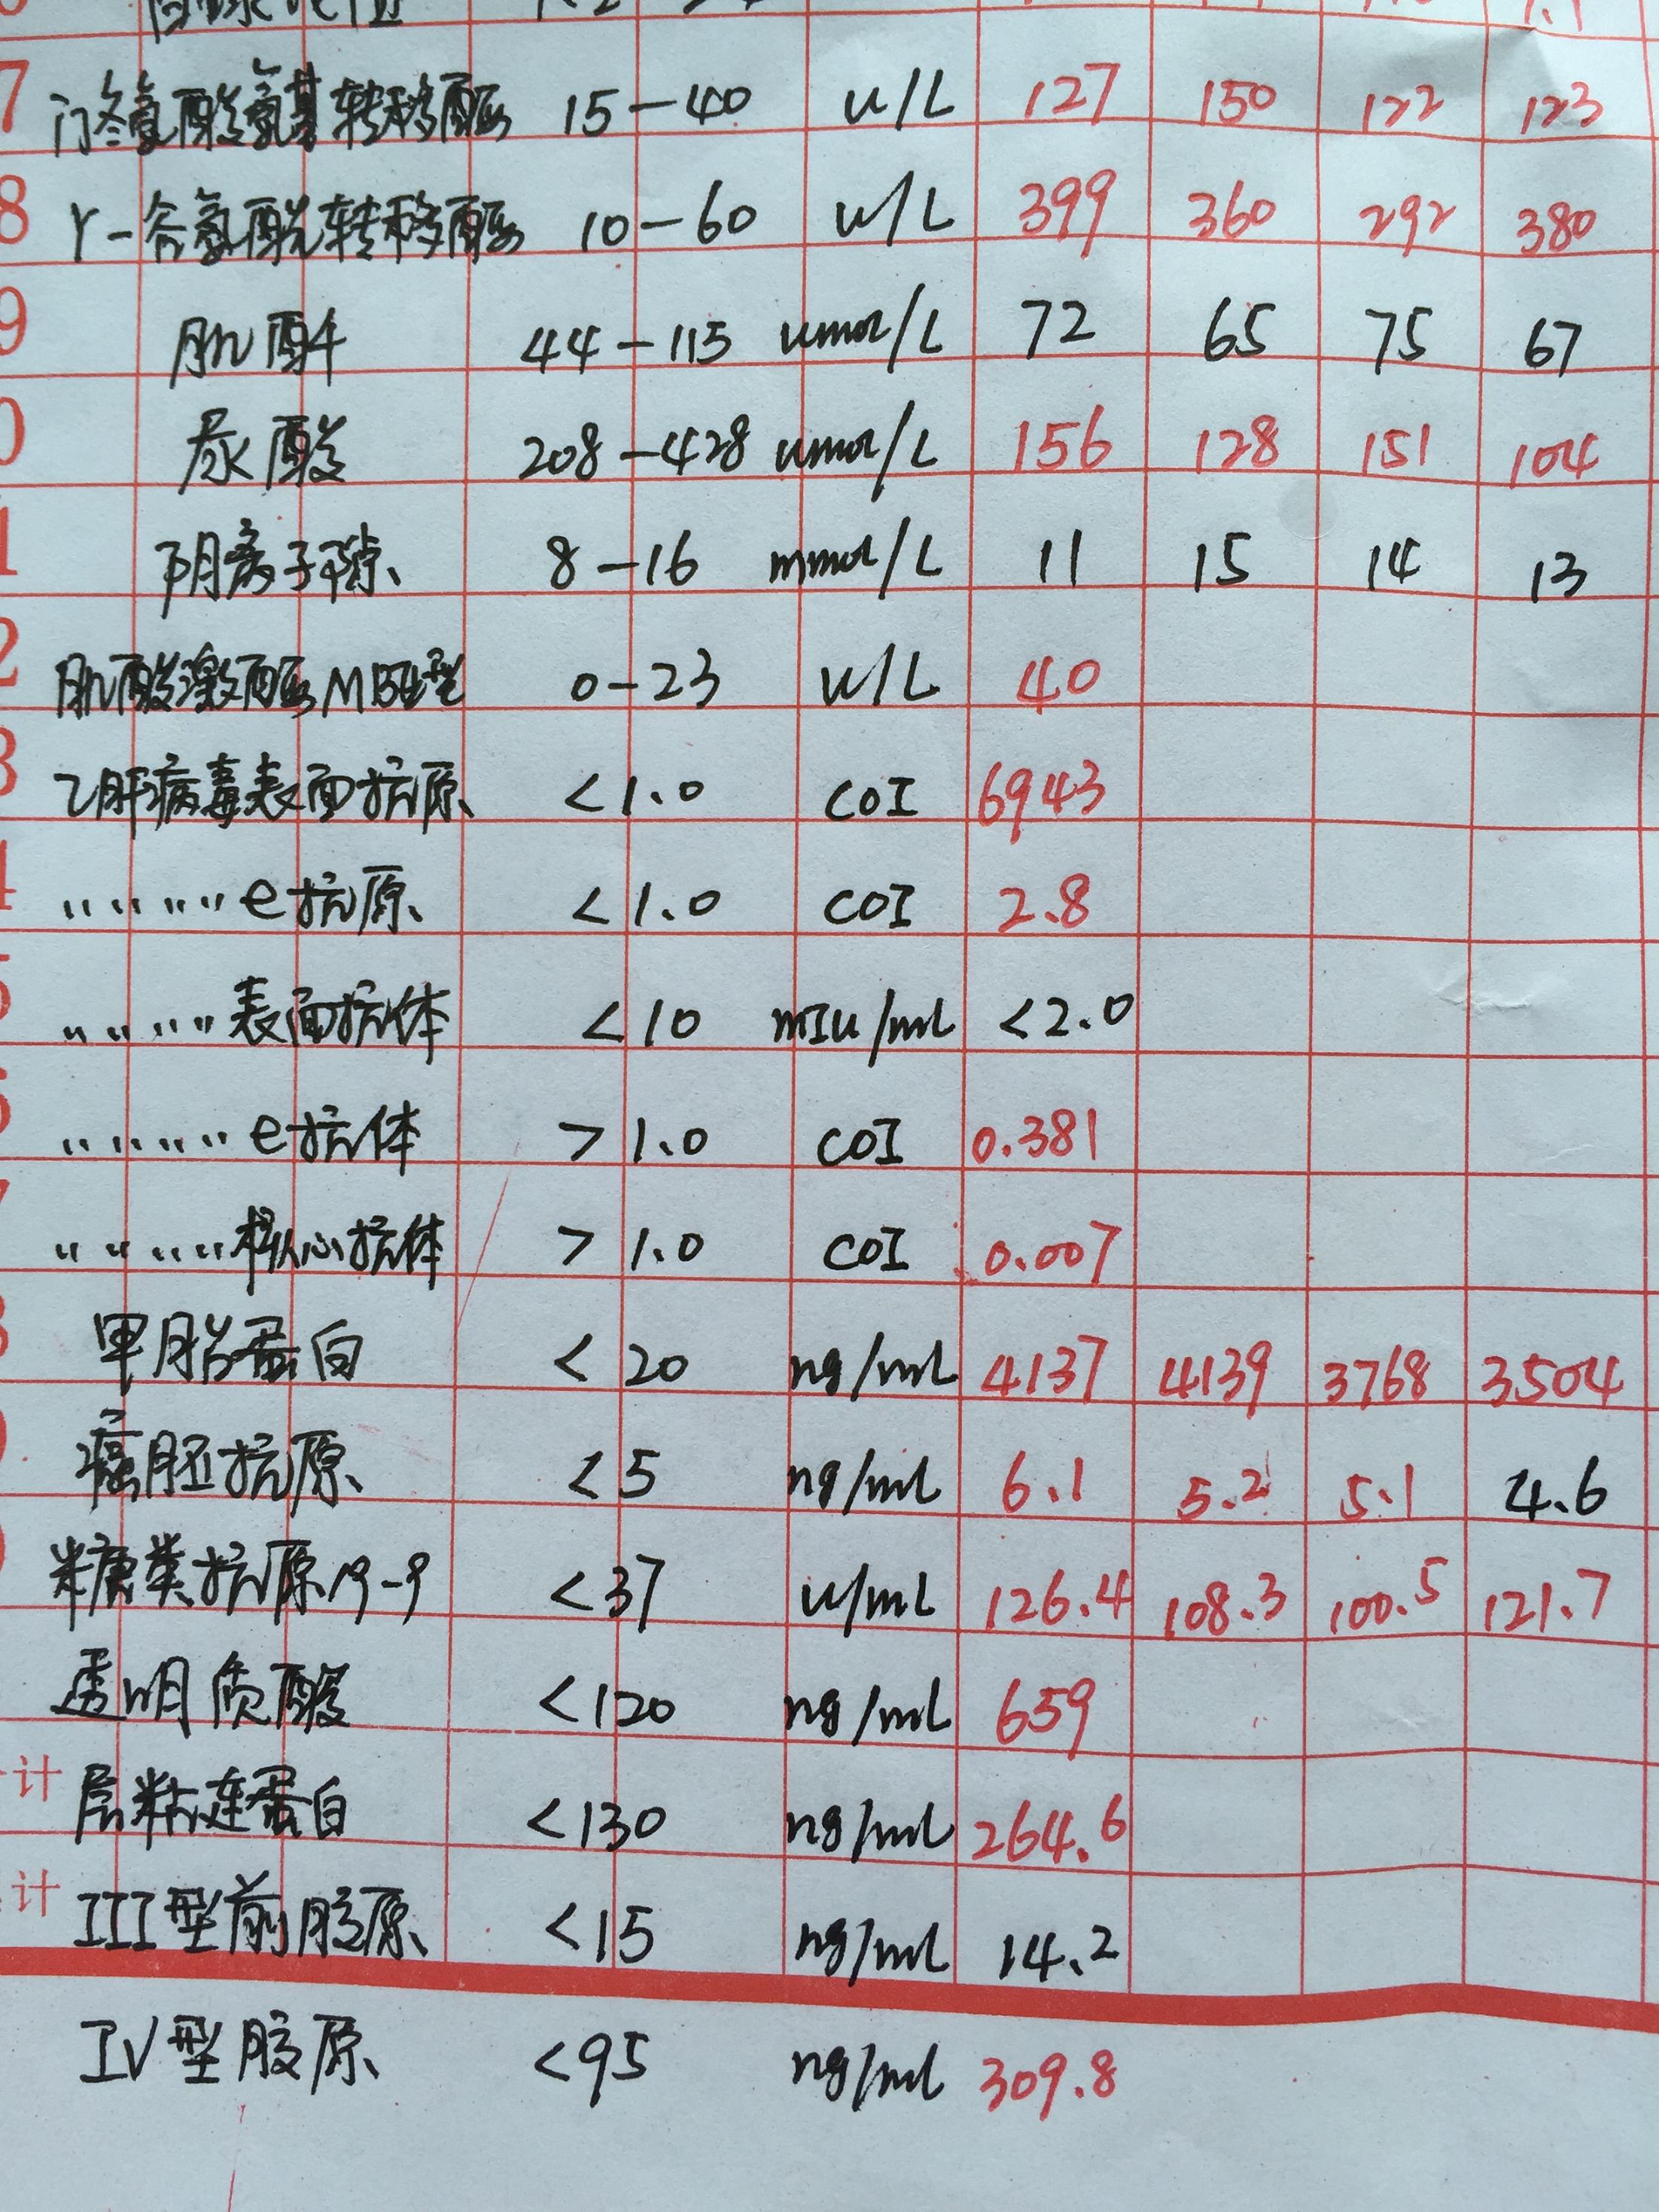 7 门冬氨酸氨基转移酶 15-40 u/L 127 150 122 123
8 γ-谷氨酰转移酶 10-60 u/L 399 360 292 380
9 肌酐 44-115 umol/L 72 65 75 67
0 尿酸 208-428 umol/L 156 128 151 104
1 阴离子隙 8-16 mmol/L 11 15 14 13
2 肌酸激酶MB同型 0-23 u/L 40
3 乙肝病毒表面抗原 <1.0 COI 6943
4 〃〃〃〃e抗原 <1.0 COI 2.8
〃〃〃〃表面抗体 <10 mIu/mL <2.0
〃〃〃〃e抗体 >1.0 COI 0.381
〃〃〃〃核心抗体 >1.0 COI 0.007
甲胎蛋白 <20 ng/mL 4137 4139 3768 3504
癌胚抗原 <5 ng/mL 6.1 5.2 5.1 4.6
糖类抗原19-9 <37 u/mL 126.4 108.3 100.5 121.7
透明质酸 <120 ng/mL 659
计 层粘连蛋白 <130 ng/mL 264.6
计 III型前胶原 <15 ng/mL 14.2
IV型胶原 <95 ng/ml 309.8